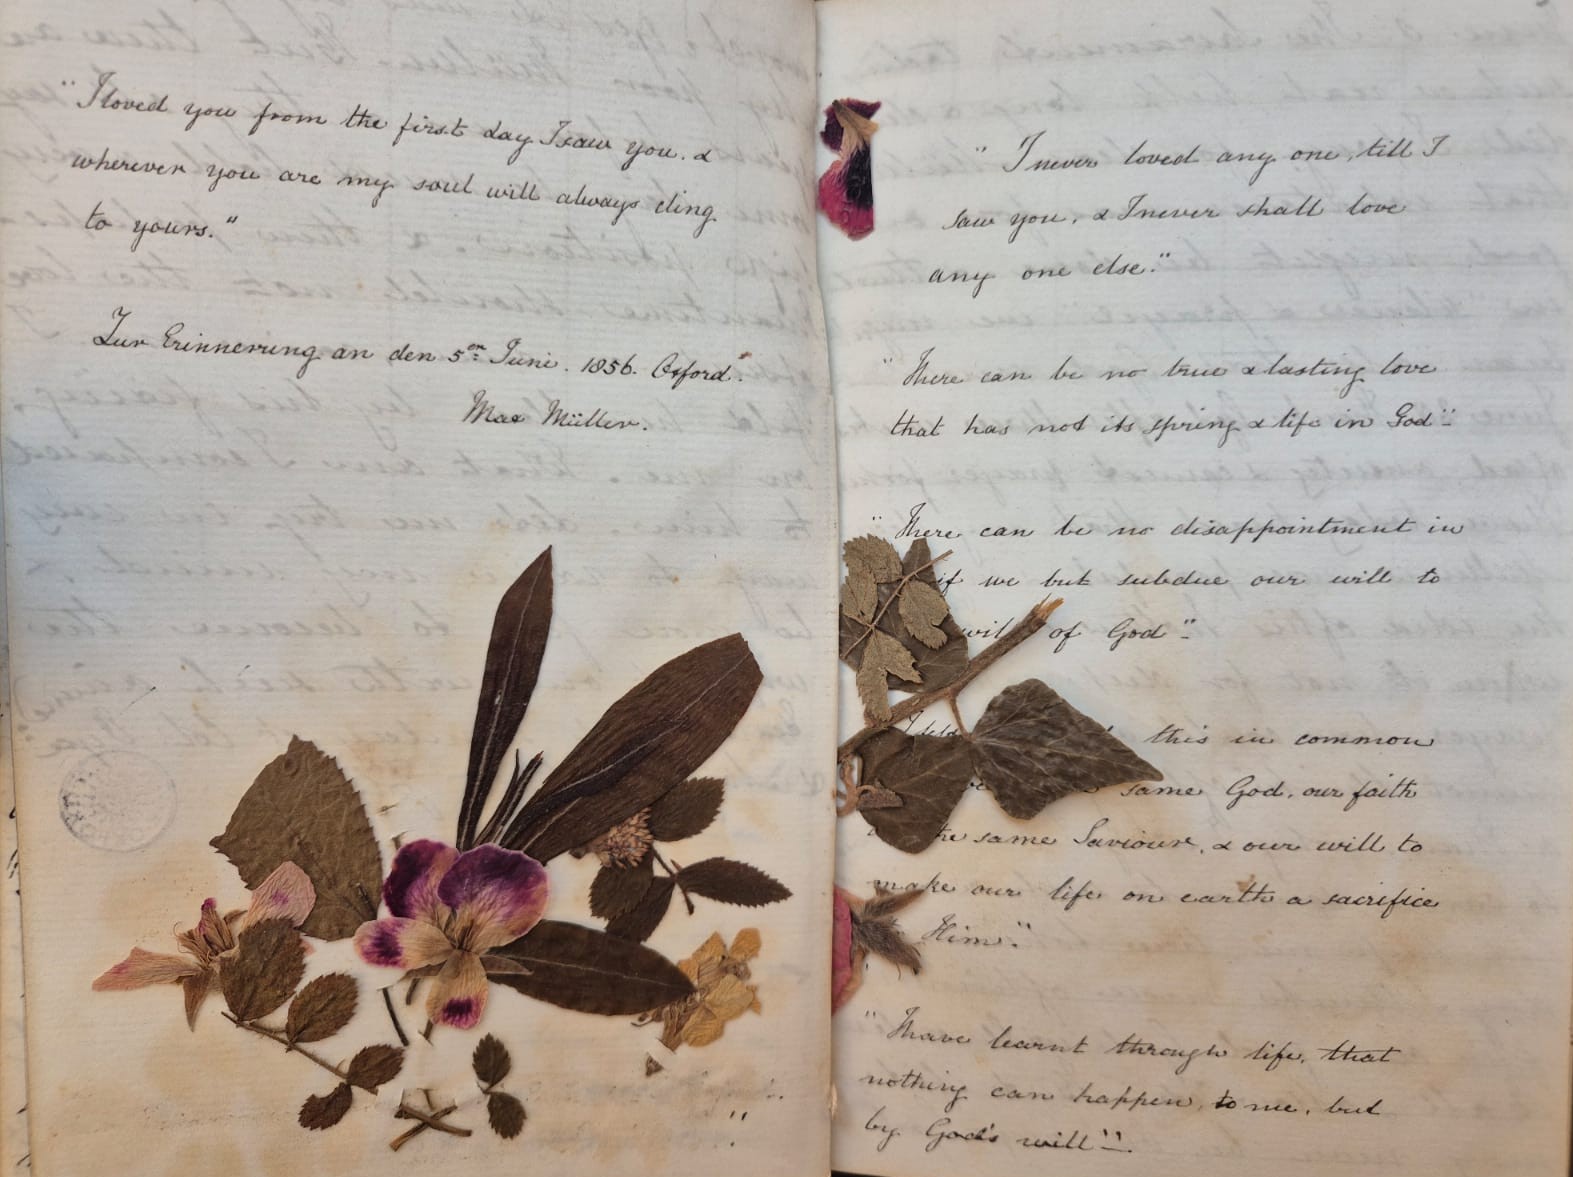 "I loved you from the first day I saw you. &
wherever you are my soul will always cling
to yours."
Zur Erinnerung an den 5en Juni. 1856. Oxford.
Max Müller.
"I never loved any one, till I
saw you, & I never shall love
any one else."
"There can be no true & lasting love
that has not its spring & life in God"
"There can be no disappointment in
if we but subdue our will to
will of God"
this in common
same God, our faith
the same Saviour, & our will to
make our life on earth a sacrifice
Him."
"I have learnt through life, that
nothing can happen to me, but
by God's will".